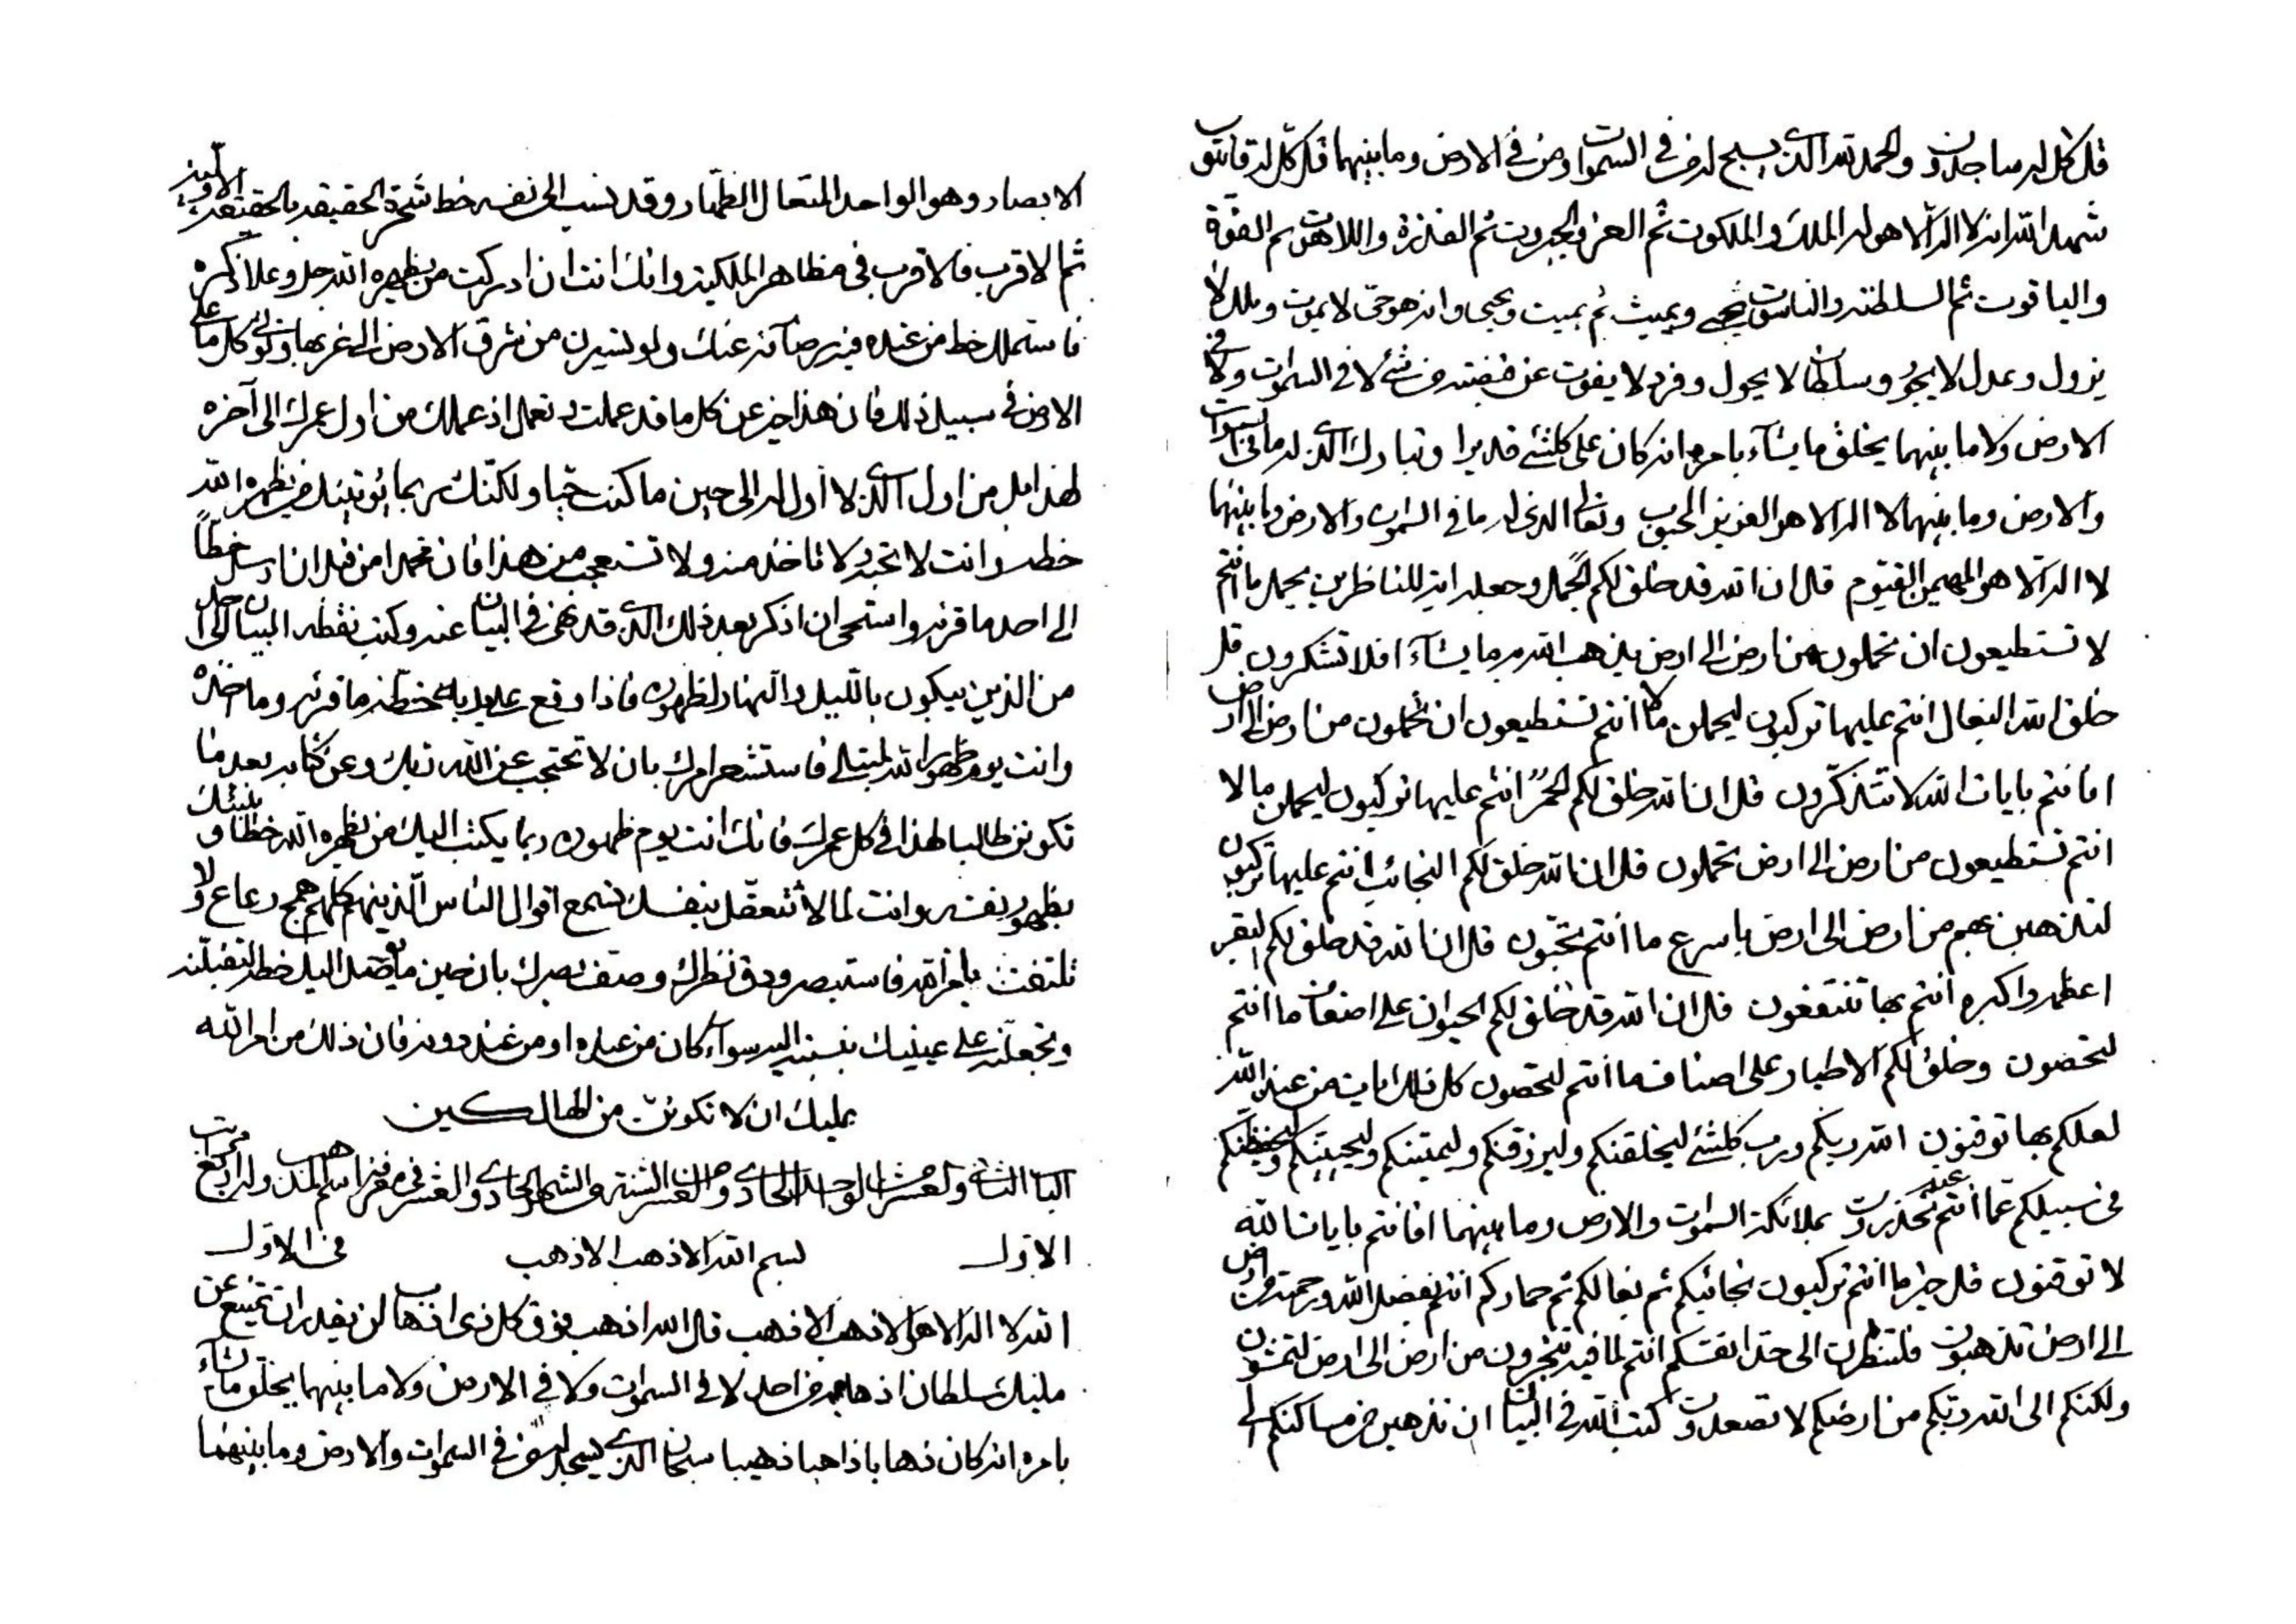 الابصار وهو الواحد المتعال الظهار وقد نسب الى نفسه خط شجرة الحقيقة بالحقيقة الاولية
ثم الاقرب فالاقرب في مظاهر الملكية وانك انت ان ادركت من يظهره الله جل وعلا ذكره
فاستملك خط من عنده فيه رضائه عنك ولو تسيرن من شرق الارض الى غربها ولتؤتي كل ما على
الارض في سبيل ذلك فان هذا خير عن كل ما قد عملت او تعمل اذ عملك من اول عمرك الى آخره
لهذا بل من اول الذي لا اول له الى حين ما كنت حيا ولكنك ربما يؤتينك من يظهره الله
خطه وانت لا تحبه ولا تاخذ منه ولا تستعجب من هذا فان محمدا من قبل ان ارسل خطا
الى احد ما قرئه واستحي ان اذكر بعد ذلك الذي قد نهى في البيان عنه وكتب نقطة البيان الى احد
من الذين يبكون بالليل والنهار لظهوره فاذا وقع على يديه خطه ما قرئه وما اخذه
وانت يوم ظهور الله لمبتلى فاستشعر امرك بان لا تحتجب عن الله ربك وعن كتابه بعد ما
تكونن طالبا لهذا في كل عمرك فانك انت يوم ظهوره ربما يكتب اليك من يظهره الله خطا وينبئك
بظهور نفسه وانت لما لا تتعقل بنفسك تسمع اقوال الناس الذينهم كلهم همج رعاع ولا
تلتفت بامر الله فاستبصر ودق نظرك وصف بصرك بان حين ما يصل اليك خطه لتقبلنه
وتجعلنه على عينيك بنسبته اليه سواء كان من عنده او من عند دونه فان ذلك من امر الله
عليك ان لا تكونن من الهالكين
الباب الثاني والعشر الواحد الحادي والعشر السنة والشهر الحادي والعشر في معرفة اسم المذهب وله اربع مراتب
الاول بسم الله الاذهب الاذهب في الاول
الله لا اله الا هو الاذهب الاذهب قل الله اذهب فوق كل ذي اذهاب لن يقدر ان يمتنع عن
مليك سلطان اذهابه من احد لا في السموات ولا في الارض ولا ما بينهما يخلق ما يشاء
بامره انه كان ذهابا ذاهبا ذهيبا سبحان الذي يسجد له من في السموات والارض وما بينهما
قل كل له ساجدون والحمد لله الذي يسبح له من في السموات ومن في الارض وما بينهما قل كل له قانتون
شهد الله انه لا اله الا هو له الملك والملكوت ثم العز والجبروت ثم القدرة واللاهوت ثم القوة
والياقوت ثم السلطنة والناسوت يحيي ويميت ثم يميت ويحيى وانه هو حي لا يموت وملك لا
يزول وعدل لا يجور وسلطان لا يحول وفرد لا يفوت عن قبضته من شئ لا في السموات ولا في
الارض ولا ما بينهما يخلق ما يشاء بامره انه كان على كلشئ قديرا وتبارك الذي له ما في السموات
والارض وما بينهما لا اله الا هو العزيز المحبوب وتعالى الذي له ما في السموات والارض وما بينهما
لا اله الا هو المهيمن القيوم قل ان الله قد خلق لكم الجمل وجعله اية للناظرين يحمل ما انتم
لا تستطيعون ان تحملون من ارض الى ارض يذهب الله به ما يشاء افلا تشكرون قل
خلق الله البغال انتم عليها تركبون ليحملن ما لا انتم تستطيعون ان تحملون من ارض الى ارض
افانتم بايات الله لا تتذكرون قل ان الله خلق لكم الحمر انتم عليها تركبون ليحملن ما لا
انتم تستطيعون من ارض الى ارض تحملون قل ان الله خلق لكم النجائب انتم عليها تركبون
لتذهبن بهم من ارض الى ارض باسرع ما انتم تحبون قل ان الله قد خلق لكم البقر
اعظمه واكبره انتم بها تنتفعون قل ان الله قد خلق لكم الحيوان على اصناف ما انتم
لتحصون وخلق لكم الاطيار على اصناف ما انتم لتحصون كل ذلك ايات من عند الله
لعلكم بها توقنون الله ربكم ورب كلشئ ليخلقنكم وليرزقنكم وليميتنكم وليحيينكم وليحفظنكم
في سبيلكم عما انتم عنه تحذرون بملائكة السموات والارض وما بينهما افانتم بايات الله
لا توقنون قل خير ما انتم تركبون نجائبكم ثم بغالكم ثم حماركم انتم بفضل الله ورحمته من ارض
الى ارض تذهبون فلتنظرن الى حد انفسكم انتم لما فيه تتجرون من ارض الى ارض لتمشون
ولكنكم الى الله ربكم من ارضكم لا تصعدون كتب الله في البيان ان تذهبن من مساكنكم الى